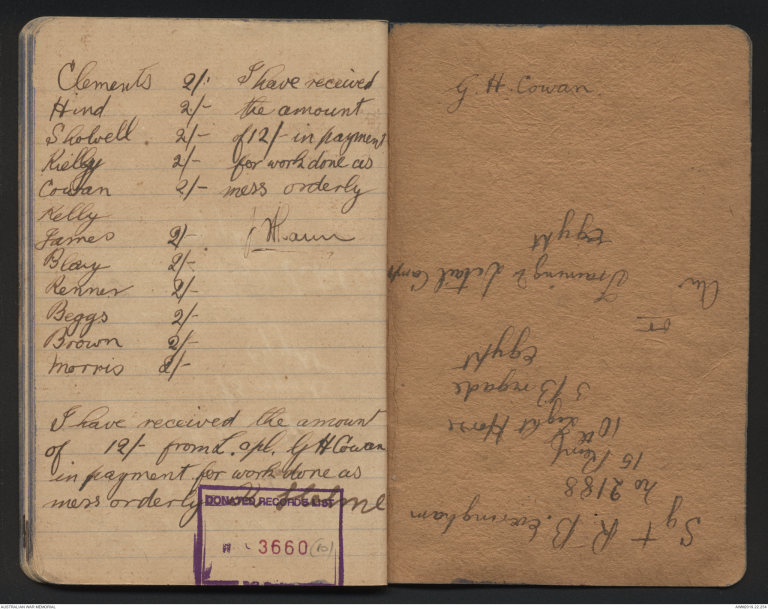 Clements 2/- I have received
Hind 2/- the amount
Sholvell 2/- of 12/- in payment
Kielly 2/- for work done as
Cowan 2/- mess orderly
Kelly
James 2/-
Blay 2/-
Renner 2/-
Beggs 2/-
Brown 2/-
Morris 2/-
I have received the amount
of 12/- from L. Cpl. G H Cowan
in payment for work done as
mess orderly
DONATED RECORDS LIST
3660 (10)
G. H. Cowan
Sgt R. B. Everingham
No 2188
15 Reinf
10th Light Horse
3 Brigade
Egypt
or
Training & Detail Camp
Egypt
AUSTRALIAN WAR MEMORIAL